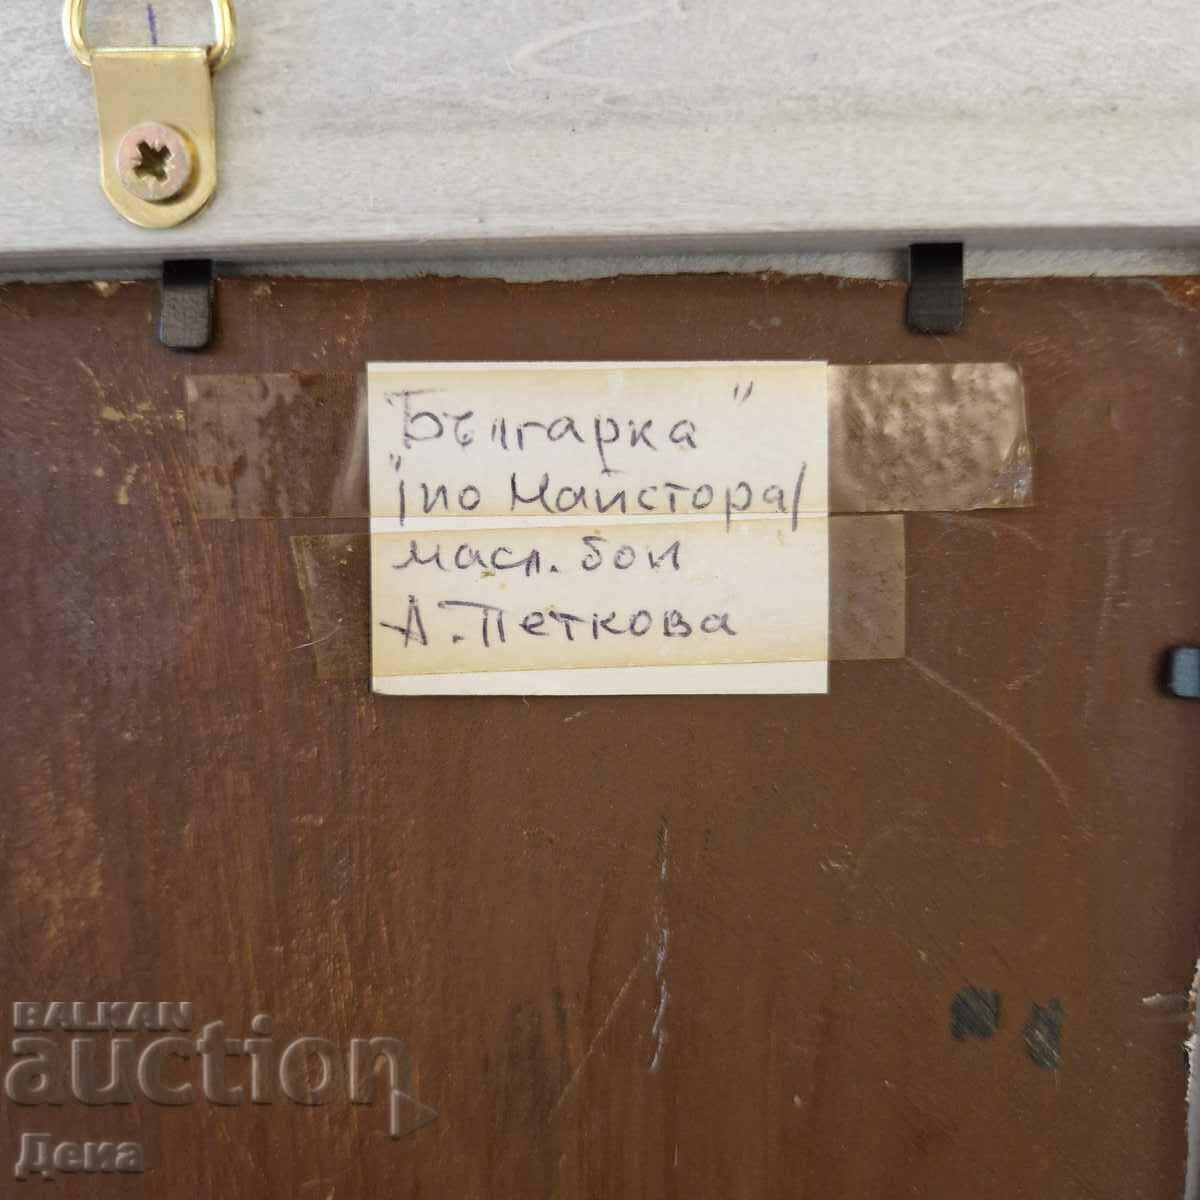 "Българка"
"/по Майстора/
масл. бои
А. Петкова
BALKAN
auction
Деиа